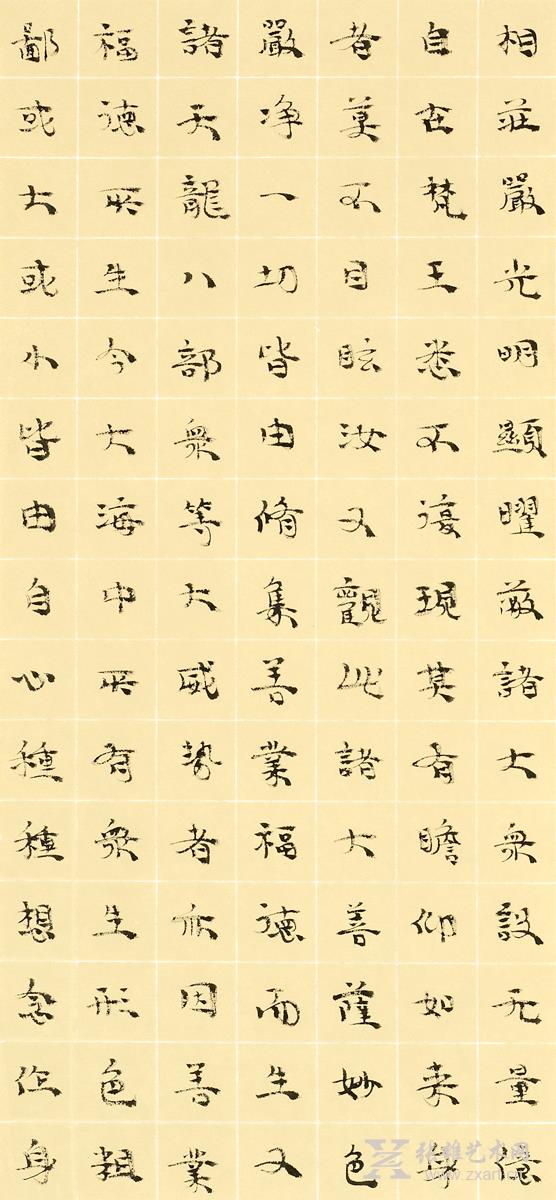 相莊嚴光明顯曜蔽諸大衆設无量億
自在梵王悉不復現其有瞻仰如來身
者莫不目眩汝又觀此諸大菩薩妙色
嚴净一切皆由脩集善業福德而生又
諸天龍八部衆等大威勢者亦因善業
福德所生今大海中所有衆生形色粗
鄙或大或小皆由自心種種想念作身
张雄艺术网
www.zxart.cn